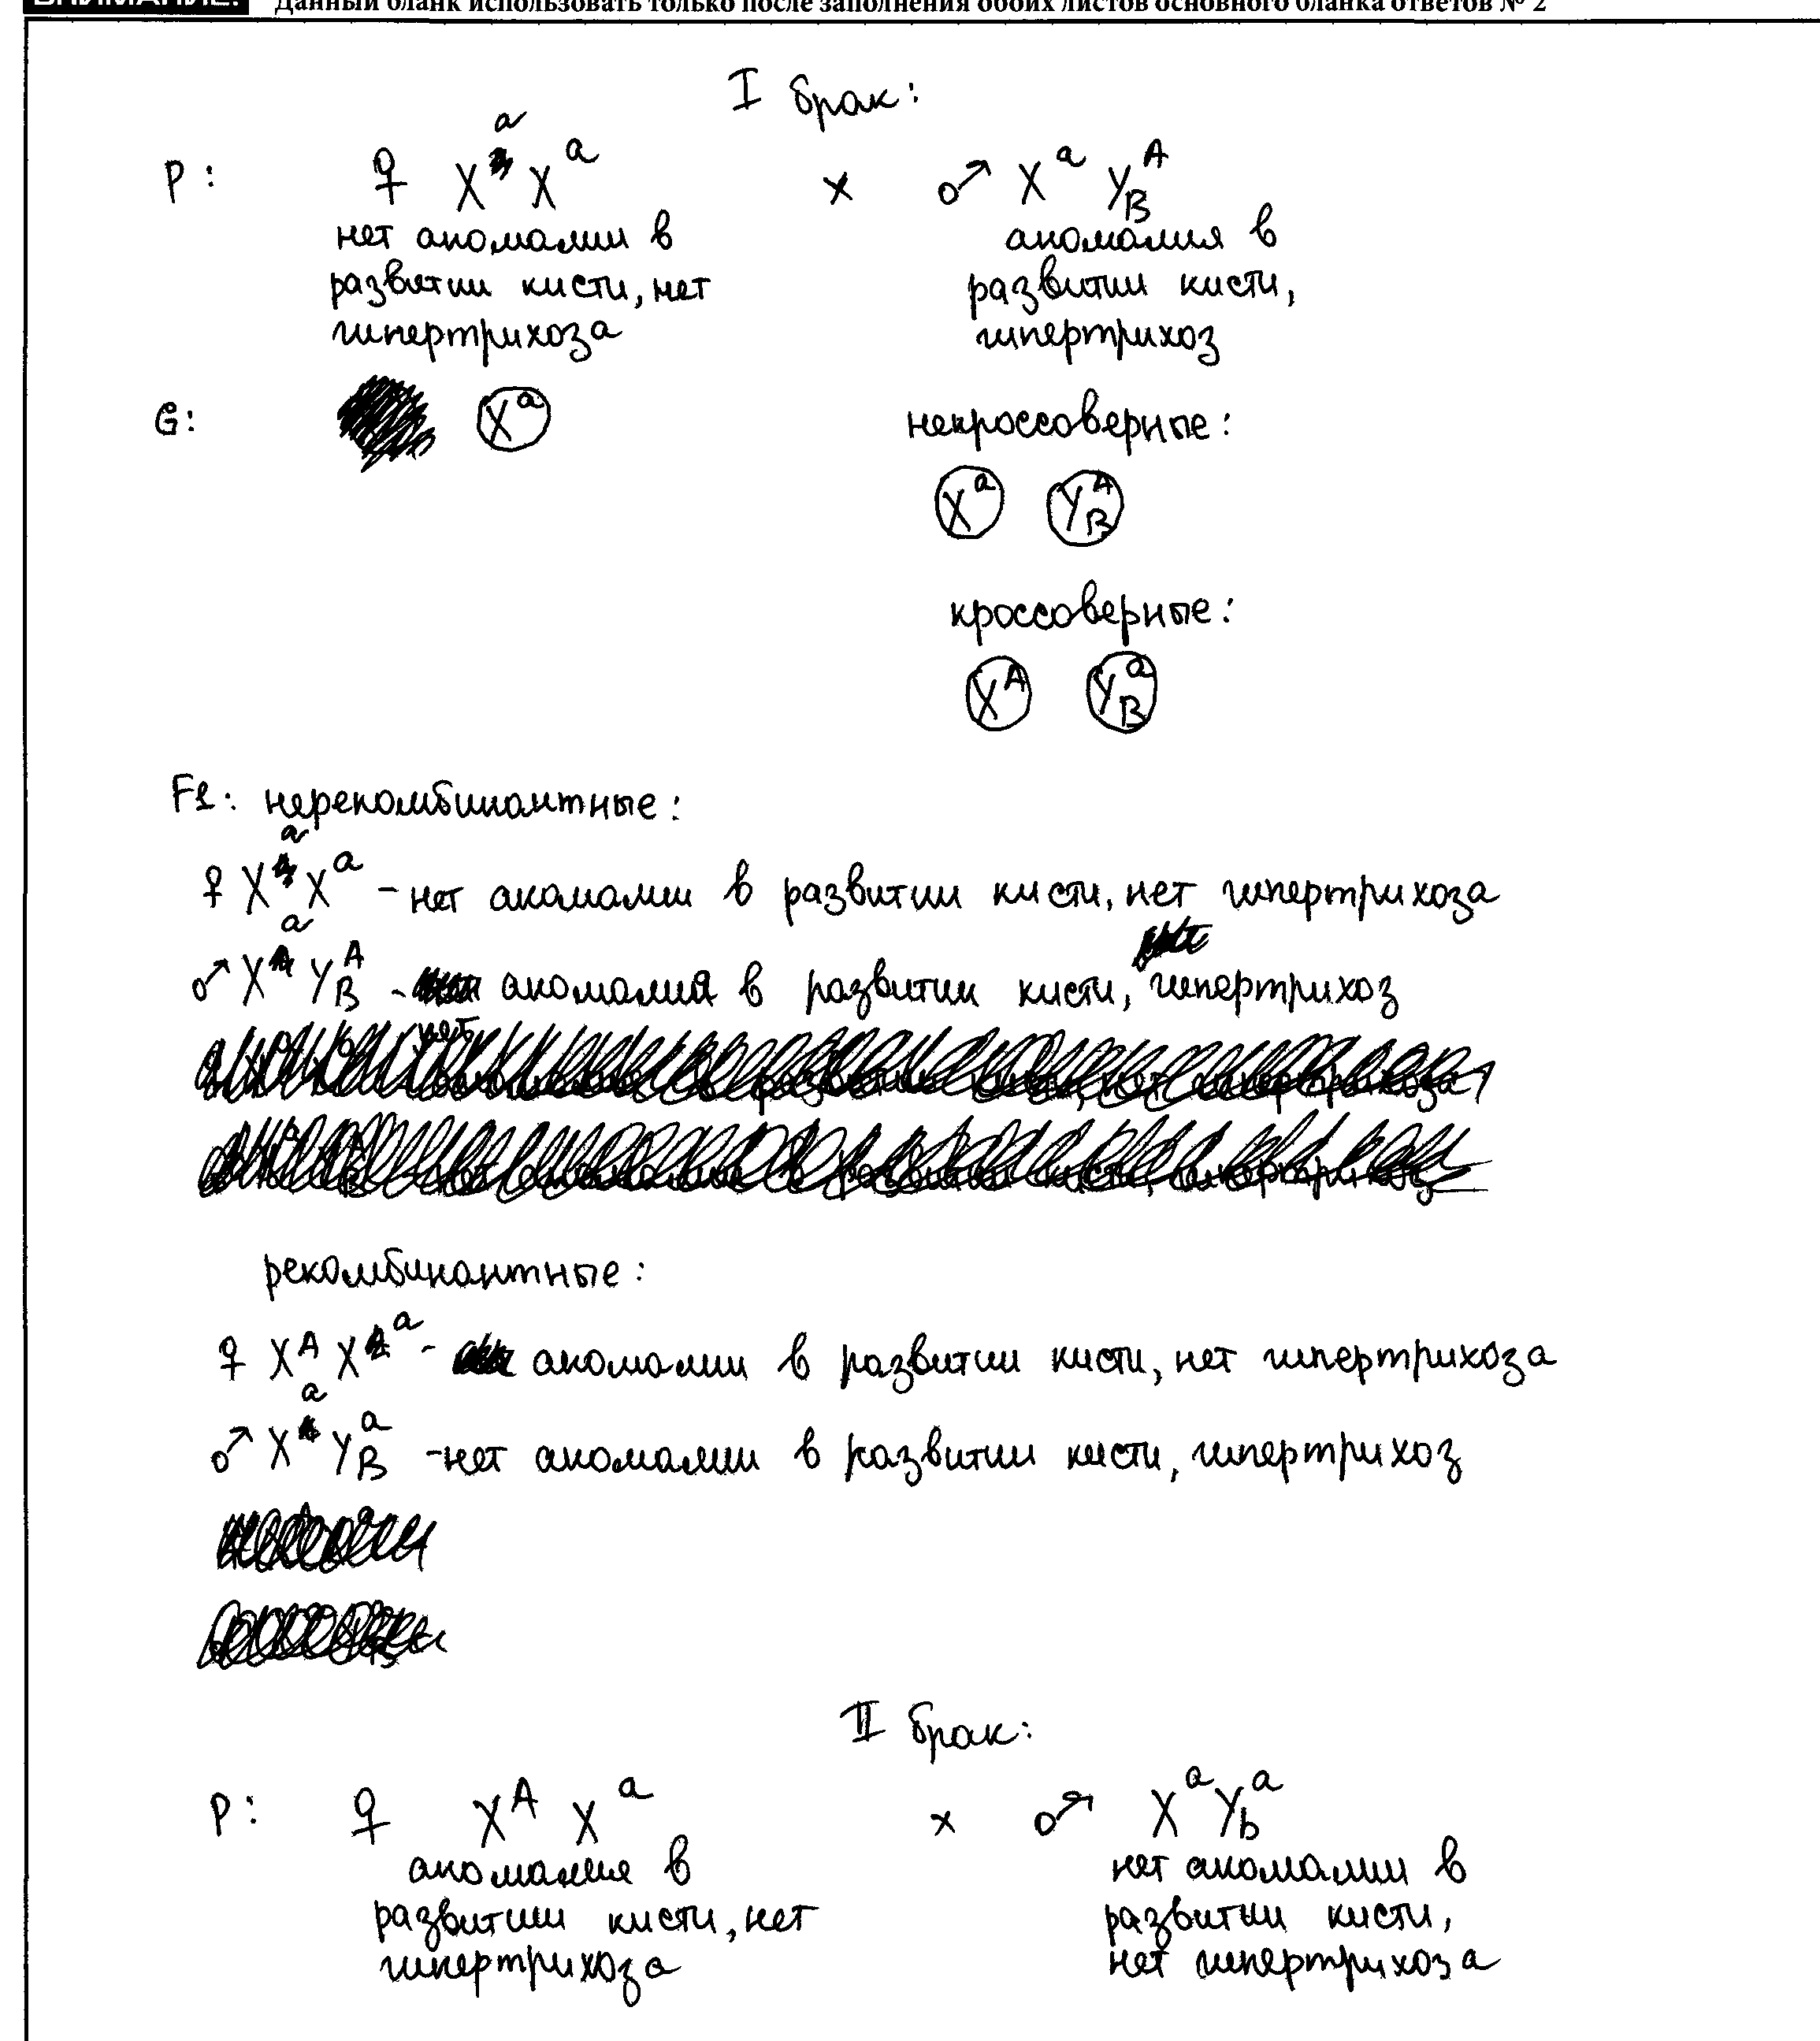 ВНИМАНИЕ! Данный бланк использовать только после заполнения обоих листов основного бланка ответов № 2
I брак:
P: ♀ XᵃXᵃ × ♂ XᵃY_Bᴬ
нет аномалии в аномалия в
развитии кисти, нет развитии кисти,
гипертрихоза гипертрихоз
G: Xᵃ некроссоверные:
Xᵃ Y_Bᴬ
кроссоверные:
Xᴬ Y_Bᵃ
F1: нерекомбинантные:
♀ XᵃXᵃ - нет аномалии в развитии кисти, нет гипертрихоза
♂ XᵃY_Bᴬ - аномалия в развитии кисти, гипертрихоз
рекомбинантные:
♀ XᴬXᵃ - аномалии в развитии кисти, нет гипертрихоза
♂ XᵃY_Bᵃ - нет аномалии в развитии кисти, гипертрихоз
II брак:
P: ♀ Xᴬ Xᵃ × ♂ XᵃY_bᵃ
аномалия в нет аномалии в
развитии кисти, нет развитии кисти,
гипертрихоза нет гипертрихоза